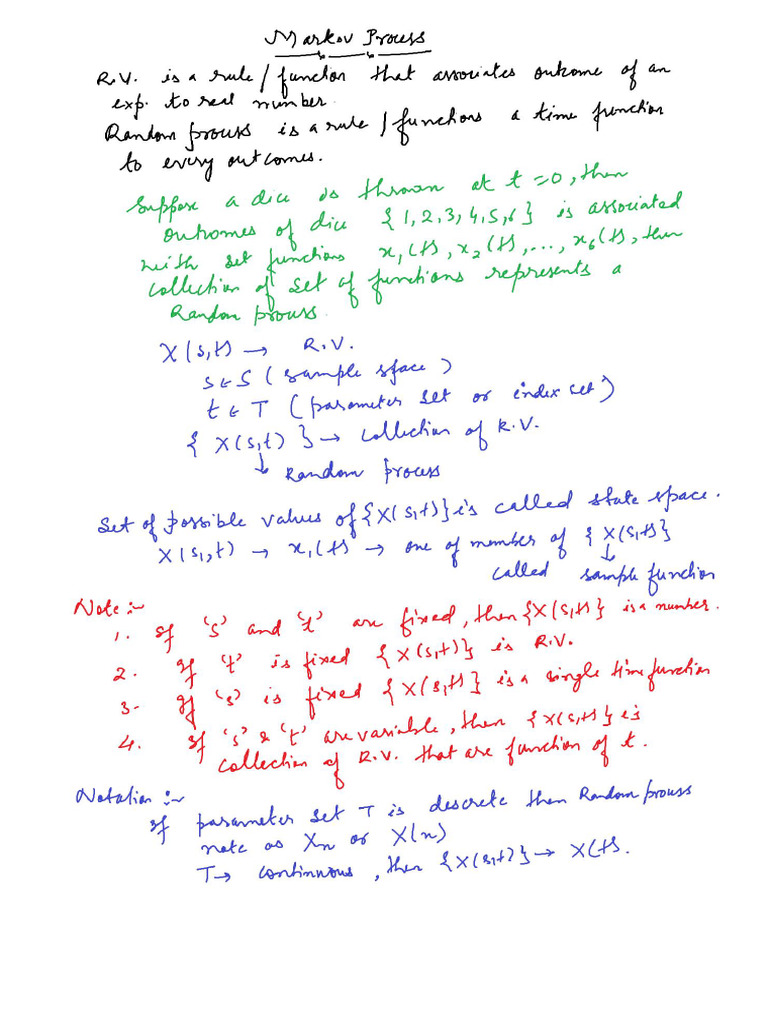 Markov Process
R.V. is a rule / function that associates outcome of an
exp. to real number.
Random process is a rule / functions a time function
to every outcomes.
Suppose a dice is thrown at t=0, then
outcomes of dice {1,2,3,4,5,6} is associated
with set functions x₁(t), x₂(t), ..., x₆(t), then
collection of set of functions represents a
Random process.
X(s,t) → R.V.
s∈S (sample space)
t∈T (parameter set or index set)
{X(s,t)} → collection of R.V.
↳ Random process
Set of possible values of {X(s,t)} is called state space.
X(s₁,t) → x₁(t) → one of member of {X(s,t)}
↓
called sample function
Note:~
1. If 's' and 't' are fixed, then {X(s,t)} is a number.
2. If 't' is fixed {X(s,t)} is R.V.
3. If 's' is fixed {X(s,t)} is a single time function
4. If 's' & 't' are variable, then {X(s,t)} is
collection of R.V. that are function of t.
Notation:~
If parameter set T is descrete then Random process
note as Xn or X(n)
T→ continuous, then {X(s,t)} → X(t).